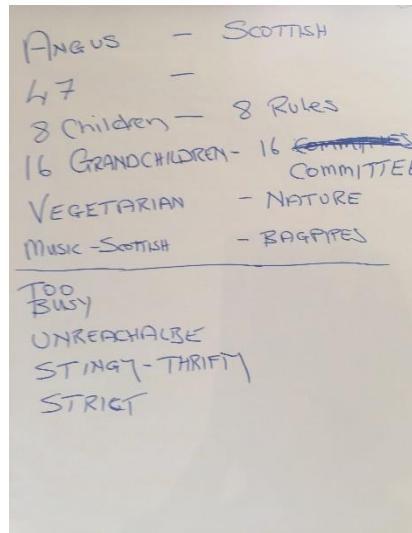 ANGUS - SCOTTISH
47 -
8 Children - 8 RULES
16 GRANDCHILDREN - 16 COMMITTIES
COMMITTEE
VEGETARIAN - NATURE
MUSIC - SCOTTISH - BAGPIPES
TOO
BUSY
UNREACHALBE
STINGY - THRIFTY
STRICT